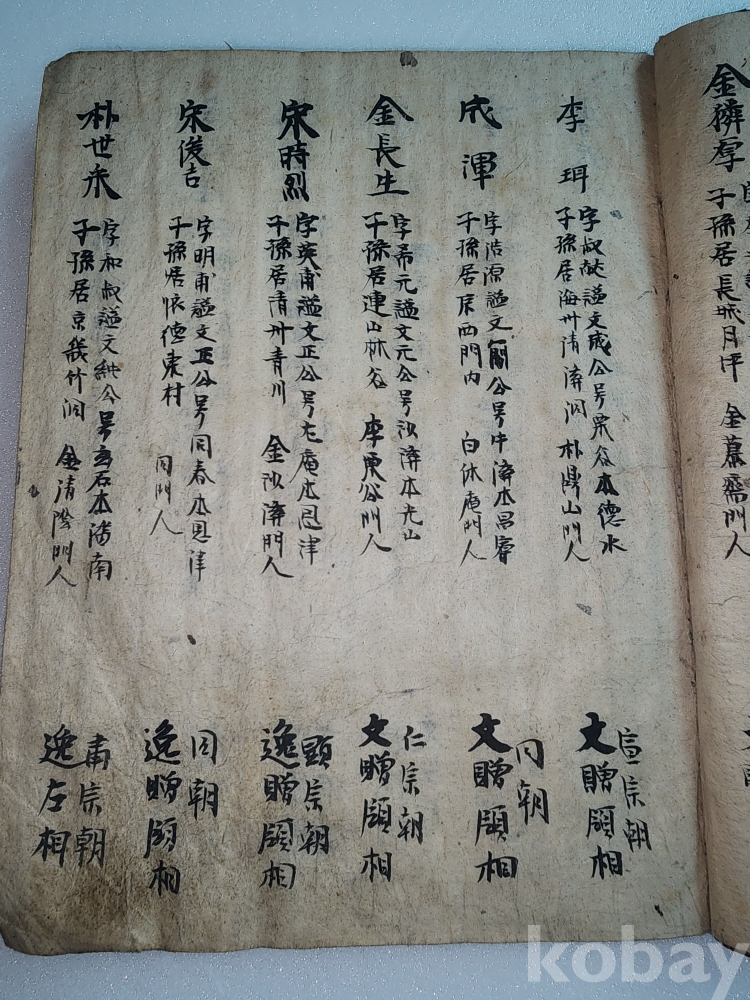 金獜厚
子孫居長城月坪 金慕齋門人
李珥
字叔献謚文成公号栗谷本德水
子孫居海州清溪洞 朴門人
宣宗朝
文贈領相
成渾
字浩源謚文簡公号牛溪本昌寧
子孫居京西門内 白休庵門人
同朝
文贈領相
金長生
字希元謚文元公号沙溪本光山
子孫居連山林谷 李栗谷門人
仁宗朝
文贈領相
宋時烈
字英甫謚文正公号尤庵本恩津
子孫居清州青川 金沙溪門人
顕宗朝
逸贈領相
宋俊吉
字明甫謚文正公号同春本恩津
子孫居懷德東村 同門人
同朝
逸贈領相
朴世采
字和叔謚文純公号玄石本潘南
子孫居京畿竹洞 金清陰門人
肅宗朝
逸左相
kobay